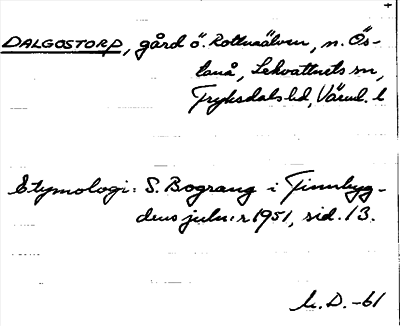 DALGOSTORP, gård ö. Rottnaälven, n. Ös-
tanå, Lekvattnets sn,
Fryksdals hd, Värml. l
Etymologi: S. Bograng i Finnbyg-
dens julnr 1951, sid. 13.
L. D. -61